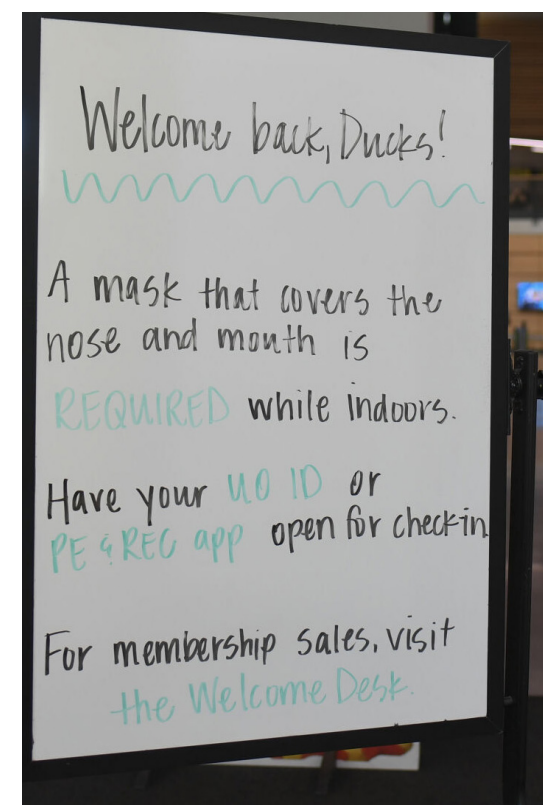 Welcome back, Ducks!
A mask that covers the
nose and mouth is
REQUIRED while indoors.
Have your UO ID or
PE & REC app open for check-in
For membership sales, visit
the Welcome Desk.